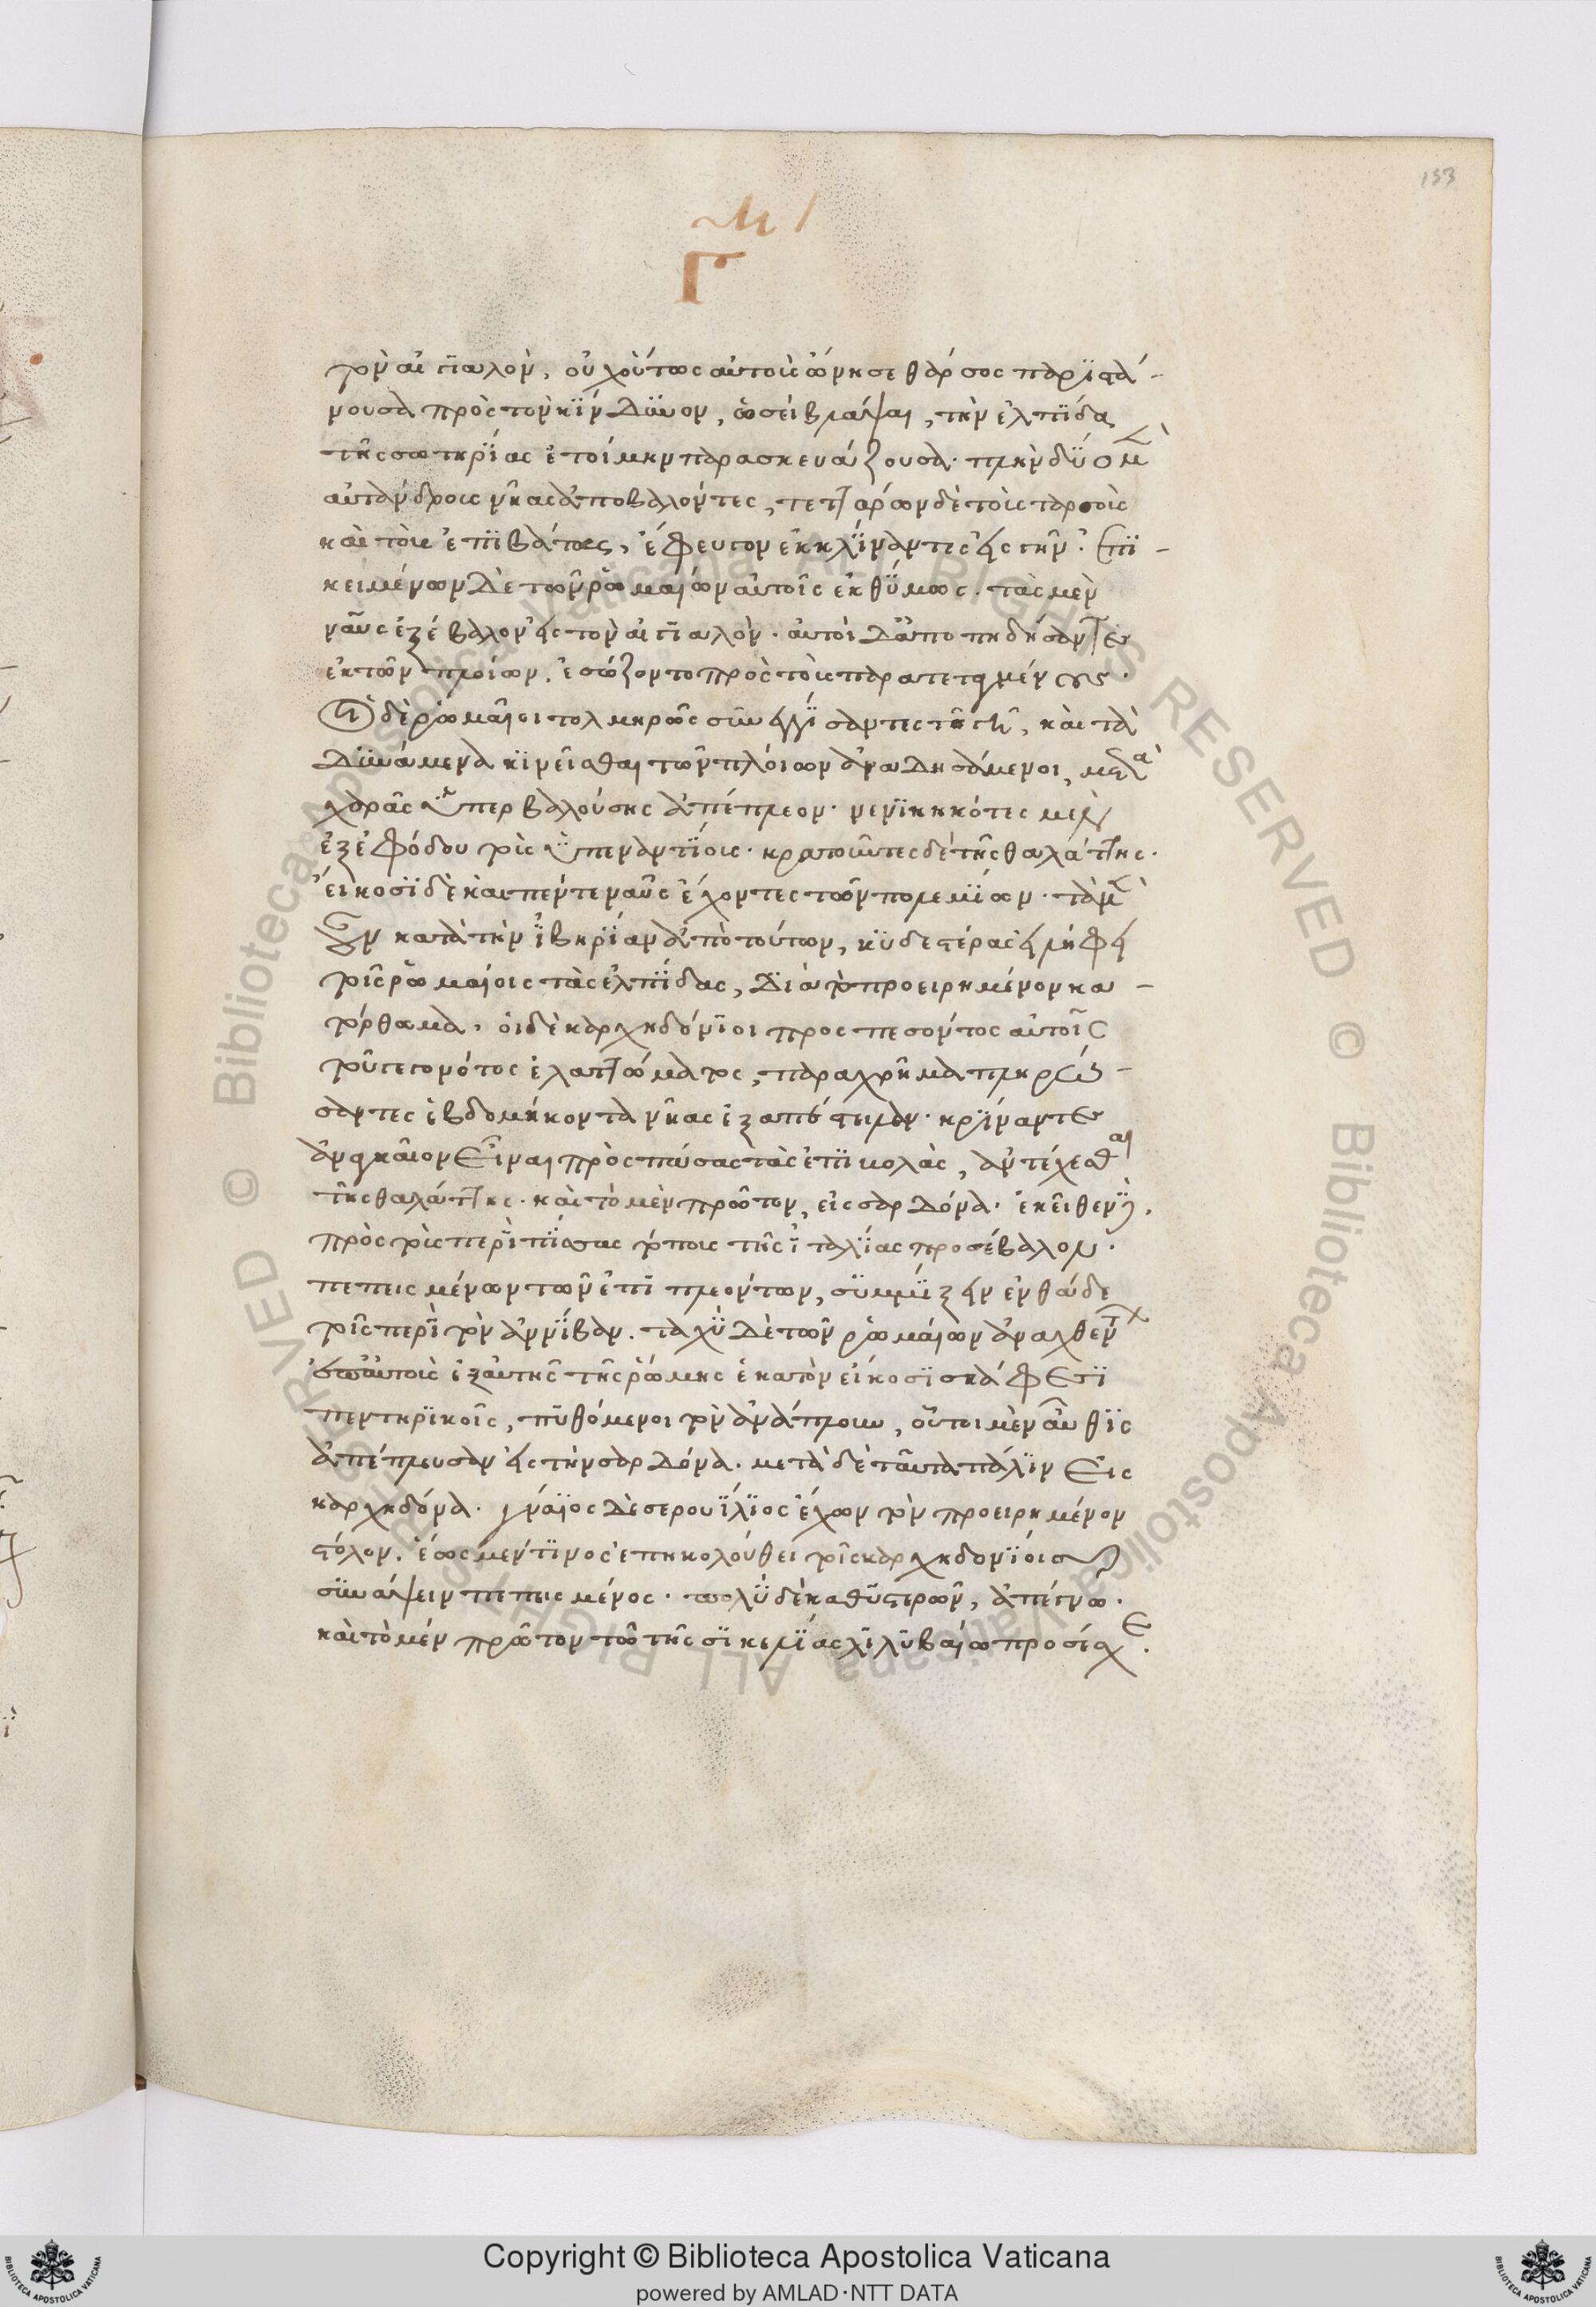 133
Γ
τὸν αἰγιαλὸν, οὐχ οὕτως αὐτοὺς ὤνησε θάρσος παριστά-
νουσα πρὸς τὸν κίνδυνον, ὡς ἔβλαψαι, τὴν ἐλπίδα
τῆς σωτηρίας ἑτοίμην παρασκευάζουσα· πλὴν δύο μὲν
αὐτάνδρους νῆας ἀποβαλόντες, τεττάρων δὲ τοὺς ταρσοὺς
καὶ τοὺς ἐπιβάτας, ἔφευγον ἐκκλίναντες εἰς γῆν· ἐπι-
κειμένων δὲ τῶν ῥωμαίων αὐτοῖς ἐκθύμως· τὰς μὲν
ναῦς ἐξέβαλον εἰς τὸν αἰγιαλὸν· αὐτοὶ δ' ἀποπηδήσαντες
ἐκ τῶν πλοίων, ἐσώζοντο πρὸς τοὺς παρατεταγμένους·
Οἱ δὲ ῥωμαῖοι τολμηρῶς συνεγγίσαντες τῆ γῆ, καὶ τὰ
δυνάμενα κινεῖσθαι τῶν πλοίων ἀναδησάμενοι, μετὰ
χαρᾶς ὑπερβαλούσης ἀπέπλεον· νενικηκότες μὲν
ἐξ ἐφόδου τοὺς ὑπεναντίους· κρατοῦντες δὲ τῆς θαλάττης·
εἴκοσι δὲ καὶ πέντε ναῦς ἔχοντες τῶν πολεμίων· τὰ μὲν
οὖν κατὰ τὴν ἰβηρίαν ἀπὸ τούτων, κυδεστέρας εἰλήφει
τοῖς ῥωμαίοις τὰς ἐλπίδας, διὰ τὸ προειρημένον κα-
τόρθαμα, οἱ δὲ καρχηδόνιοι προσπεσόντος αὐτοῖς
τοῦ γεγονότος ἐλαττώματος, παραχρῆμα πληρώ-
σαντες ἑβδομήκοντα νῆας ἐξαπέστειλαν· κρίναντες
ἀναγκαῖον εἶναι πρὸς πάσας τὰς ἐπιβολὰς, ἀντέχεσθαι
τῆς θαλάττης· καὶ τὸ μὲν πρῶτον, εἰς σαρδόνα· ἐκεῖθεν δὲ
πρὸς τοὺς περὶ πίσας τόπους τῆς ἰταλίας προσέβαλον·
πεπεισμένων τῶν ἐπιπλεόντων, συμμίξειν ἐνθάδε
τοῖς περὶ τὸν ἀννίβαν· ταχὺ δὲ τῶν ῥωμαίων ἀναχθέντων
ἐπ' αὐτοὺς ἐξ αὐτῆς τῆς ῥώμης ἑκατὸν εἴκοσι σκάφεσι
πεντηρικοῖς, πυθόμενοι τὸν ἀνάπλουν, οὗτοι μὲν αὖθις
ἀπέπλευσαν εἰς τὴν σαρδόνα· μετὰ δὲ ταῦτα πάλιν εἰς
καρχηδόνα· γνάϊος δὲ σερουίλιος ἔχων τὸν προειρημένον
στόλον, ἕως μέν τινος ἐπηκολούθει τοῖς καρχηδονίοις
συνάψειν πεπεισμένος· πολὺ δὲ καθυστερῶν, ἀπέγνω·
καὶ τὸ μὲν πρῶτον τῶ τῆς σικελίας λιλυβαίω προσέσχε·
Copyright © Biblioteca Apostolica Vaticana
powered by AMLAD·NTT DATA